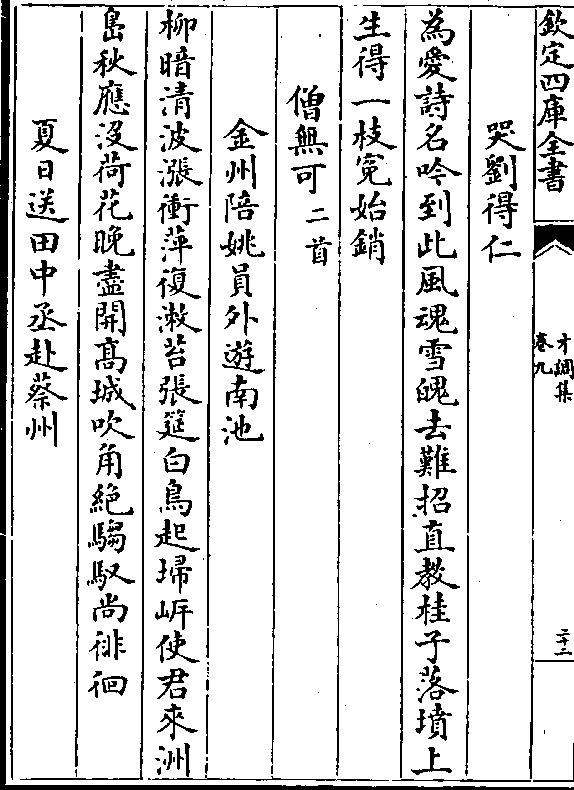 欽定四庫全書
才調集
卷九
二十二
哭劉得仁
為愛詩名吟到此風魂雪魄去難招直教桂子落墳上
生得一枝冤始銷
僧無可二首
金州陪姚員外遊南池
柳暗清波漲衝萍復漱苔張筵白鳥起掃岸使君來洲
島秋應沒荷花晚盡開髙城吹角絶騶馭尚徘徊
夏日送田中丞赴蔡州